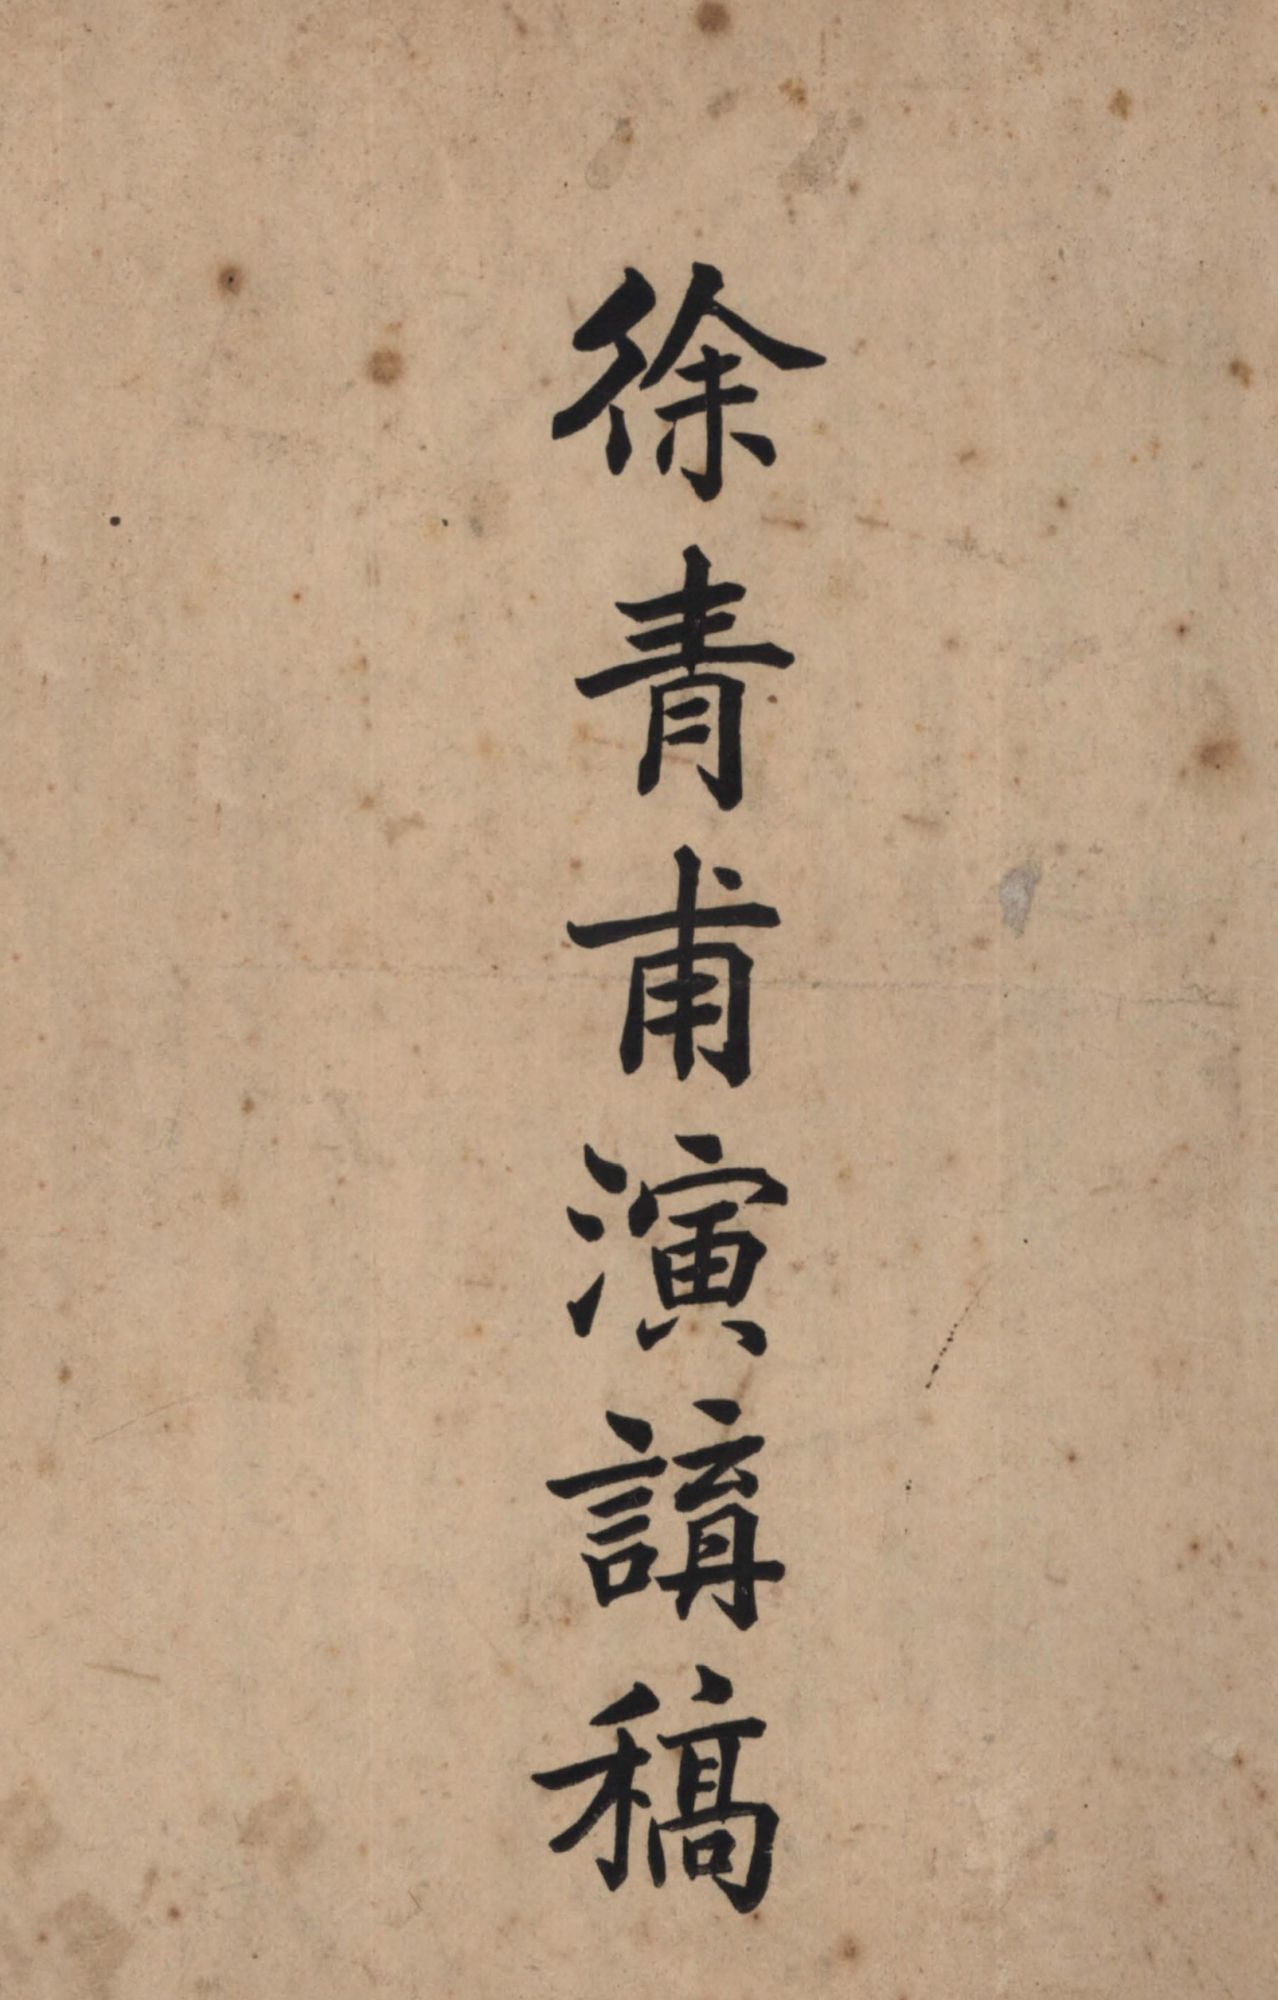 徐青甫演講稿